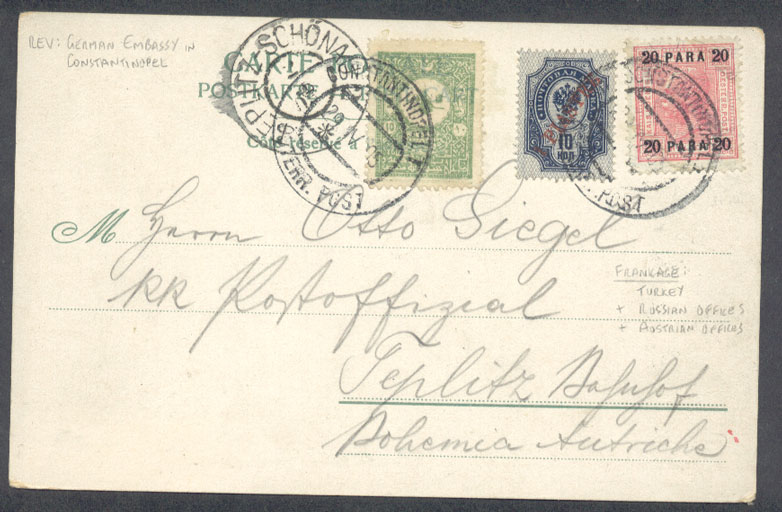 REV: GERMAN EMBASSY IN
CONSTANTINOPEL
CARTE
POSTKARTE
Côté réservé à
TEPLITZ-SCHÖNAU
CONSTANTINOPEL I
29 IV
ÖSTERR. POST
ПОЧТОВАЯ МАРКА
10
КОП
20 PARA 20
20 PARA 20
CONSTANTINOPEL I
POST
M Herrn Otto Siegel
kk Postoffizial
FRANKAGE:
TURKEY
+ RUSSIAN OFFICES
+ AUSTRIAN OFFICES
Teplitz Bahnhof
Bohemia Autriche